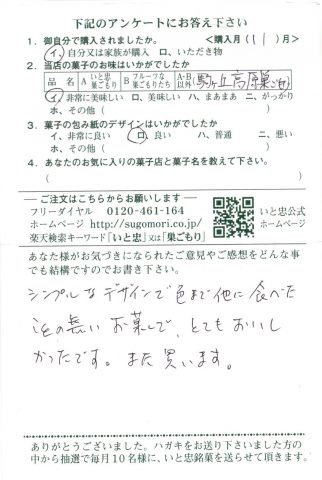 下記のアンケートにお答え下さい
1. 御自分で購入されましたか。 <購入月( 11 )月>
イ. 自分又は家族が購入 ロ. いただき物
2. 当店の菓子のお味はいかがでしたか
品 名 A いと忠巣ごもり B フルーツな巣ごもりたち A・B以外 駒ヶ丘高原巣ごもり
イ. 非常に美味しい ロ. 美味しい ハ. まあまあ ニ. がっかり
ホ. その他( )
3. 菓子の包み紙のデザインはいかがでしたか
イ. 非常に良い ロ. 良い ハ. 普通 ニ. 悪い
ホ. その他( )
4. あなたのお気に入りの菓子店と菓子名を教えて下さい。
( )
ご注文はこちらからお願いします
フリーダイヤル 0120-461-164
ホームページ http://sugomori.co.jp/
楽天検索キーワード「いと忠」又は「巣ごもり」
いと忠公式
ホームページ
あなた様がお気づきになられたご意見やご感想をどんな事
でも結構ですのでお書き下さい。
シンプルなデザインで色まで他に食べた
ことの無いお菓子で、とてもおいし
かったです。また買います。
ありがとうございました。ハガキをお送り下さいました方の
中から抽選で毎月10名様に、いと忠銘菓を送らせて頂きます。